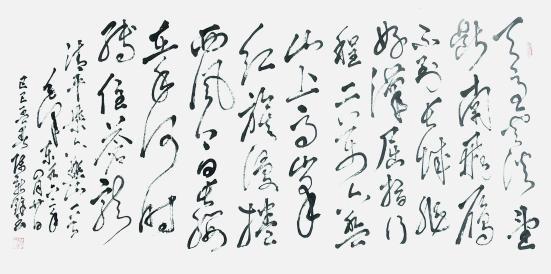 天高云淡望
断南飞雁
不到长城非
好漢屈指行
程二万六盘
山上高峰
红旗漫捲
西风今日长缨
在手何时
缚住苍龙
清平乐六盘山
毛泽东
己巳